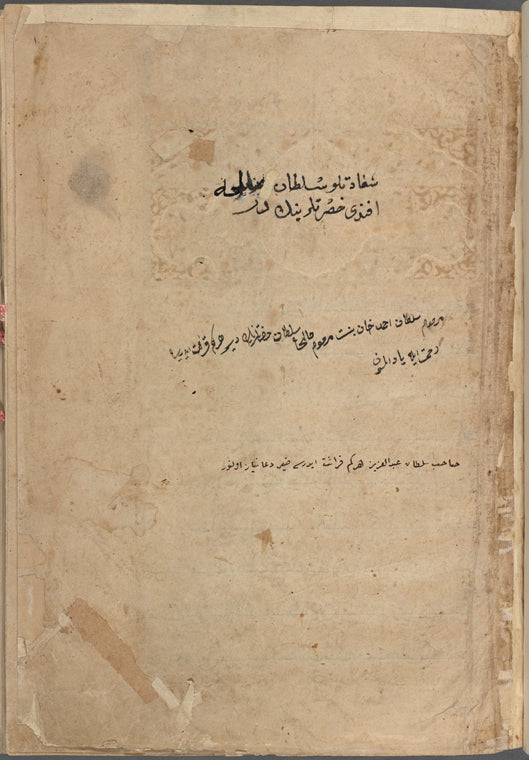 سعادتلو سلطان صالحه
افندی حضرتلرینك در
مرحوم سلطان احمد خان بنت مرحوم صالحا سلطان حضرتلرینك دیر هر کم قرائت ایدرسه
رحمت ایله یاد
صاحب سلطان عبدالعزیز هر کم قرائت ایدرسه خیر دعا نیاز اولنور